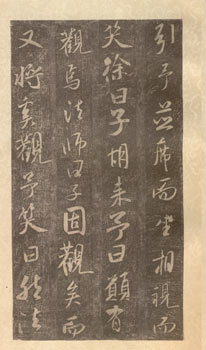 引予並席而坐相視而
笑徐曰子胡来予曰願有
觀焉法師曰子固觀矣而
又将奚觀予笑曰然法